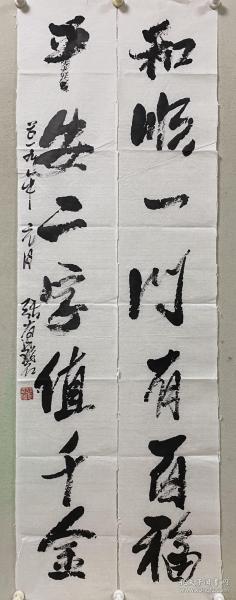 和顺一門有百福
平安二字值千金
元月